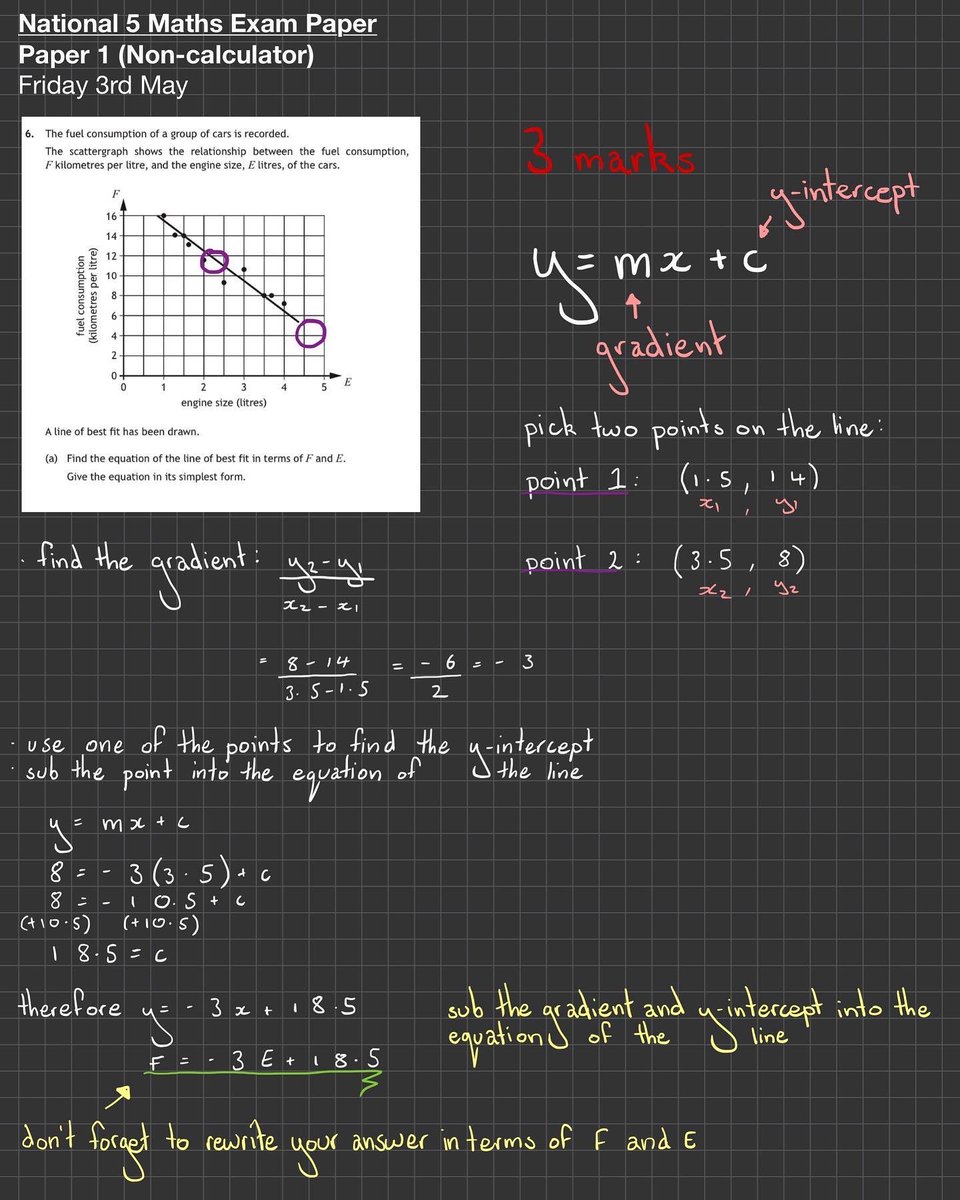 National 5 Maths Exam Paper
Paper 1 (Non-calculator)
Friday 3rd May
6. The fuel consumption of a group of cars is recorded.
The scattergraph shows the relationship between the fuel consumption,
F kilometres per litre, and the engine size, E litres, of the cars.
F
16
14
12
10
8
6
4
2
0
fuel consumption
(kilometres per litre)
0 1 2 3 4 5 E
engine size (litres)
A line of best fit has been drawn.
(a) Find the equation of the line of best fit in terms of F and E.
Give the equation in its simplest form.
3 marks
y-intercept
y = mx + c
gradient
pick two points on the line:
point 1: (1.5, 14)
x₁, y₁
point 2: (3.5, 8)
x₂, y₂
· find the gradient: y₂-y₁
x₂ - x₁
= 8 - 14 = - 6 = - 3
3.5-1.5 2
· use one of the points to find the y-intercept
· sub the point into the equation of the line
y = mx + c
8 = - 3(3.5) + c
8 = - 10.5 + c
(+10.5) (+10.5)
18.5 = c
therefore y = - 3x + 18.5
F = - 3E + 18.5
sub the gradient and y-intercept into the
equation of the line
don't forget to rewrite your answer in terms of F and E